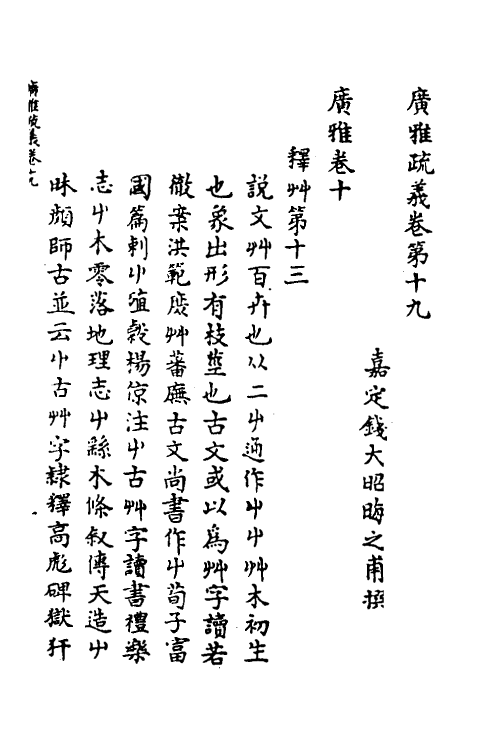 廣雅疏義卷第十九
嘉定錢大昭晦之甫撰
廣雅卷十
釋艸第十三
說文艸百卉也从二屮通作屮屮艸木初生
也象出形有枝莖也古文或以爲艸字讀若
徹案洪範庻艸蕃廡古文尚書作屮荀子富
國篇刺屮殖穀楊倞注屮古艸字讀書禮樂
志屮木零落地理志屮繇木條叙傳天造屮
昧顔師古並云屮古艸字隸釋高彪碑獄犴
廣雅疏義卷十九